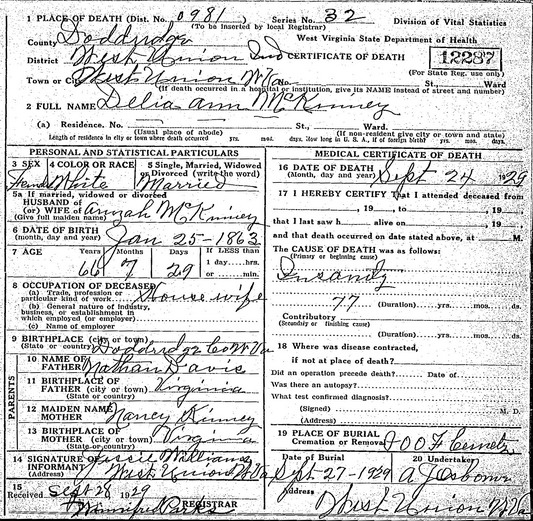 1 PLACE OF DEATH (Dist. No. 0981 Series No. 32 Division of Vital Statistics
(To be inserted by local Registrar)
County Doddridge West Virginia State Department of Health
District West Union CERTIFICATE OF DEATH 12287
(For State Reg. use only)
Town or City West Union W Va No. St., Ward
(If death occurred in a hospital or institution, give its NAME instead of street and number)
2 FULL NAME Delia Ann McKinney
(a) Residence. No. St., Ward.
(Usual place of abode) (If non-resident give city or town and state)
Length of residence in city or town where death occurred yrs. mos. days. How long in U. S. A., if of foreign birth? yrs. mos. ds.
PERSONAL AND STATISTICAL PARTICULARS
3 SEX 4 COLOR OR RACE 5 Single, Married, Widowed or Divorced (write the word)
Female White Married
5a If married, widowed or divorced
HUSBAND of
(or) WIFE of McKinney
(Give full maiden name)
6 DATE OF BIRTH
(month, day, and year) Jan 25-1863
7 AGE Years Months Days If LESS than
1 day hrs.
or min.
66 7 29
8 OCCUPATION OF DECEASED
(a) Trade, profession or
particular kind of work House wife
(b) General nature of industry,
business, or establishment in
which employed (or employer)
(c) Name of employer
9 BIRTHPLACE (city or town)
(State or country) Doddridge Co W Va
PARENTS
10 NAME OF
FATHER Nathan Davis
11 BIRTHPLACE OF
FATHER (city or town) Virginia
(State or country)
12 MAIDEN NAME
MOTHER Nancy Kinney
13 BIRTHPLACE OF
MOTHER (city or town) Virginia
(State or country)
14 SIGNATURE OF
INFORMANT Jessie Williams
(Address) West Union W Va
15
Received Sept 28 1929
Winnifred
REGISTRAR
MEDICAL CERTIFICATE OF DEATH
16 DATE OF DEATH
(Month, day and year) Sept 24 1929
17 I HEREBY CERTIFY That I attended deceased from
, 19 , to , 19 ,
that I last saw h alive on , 19 ,
and that death occurred on date stated above, at M.
The CAUSE OF DEATH was as follows:
(Primary or beginning cause)
Insanity
77 (Duration) yrs. mos. ds.
Contributory
(Secondary or finishing cause)
(Duration) yrs. mos. ds.
18 Where was disease contracted,
if not at place of death?
Did an operation precede death? Date of
Was there an autopsy?
What test confirmed diagnosis?
(Signed) M. D.
(Address)
19 PLACE OF BURIAL
Cremation or Removal I O O F Cemetery
Date of Burial 20 Undertaker
Sept-27-1929 A J Osborn
Address West Union W Va